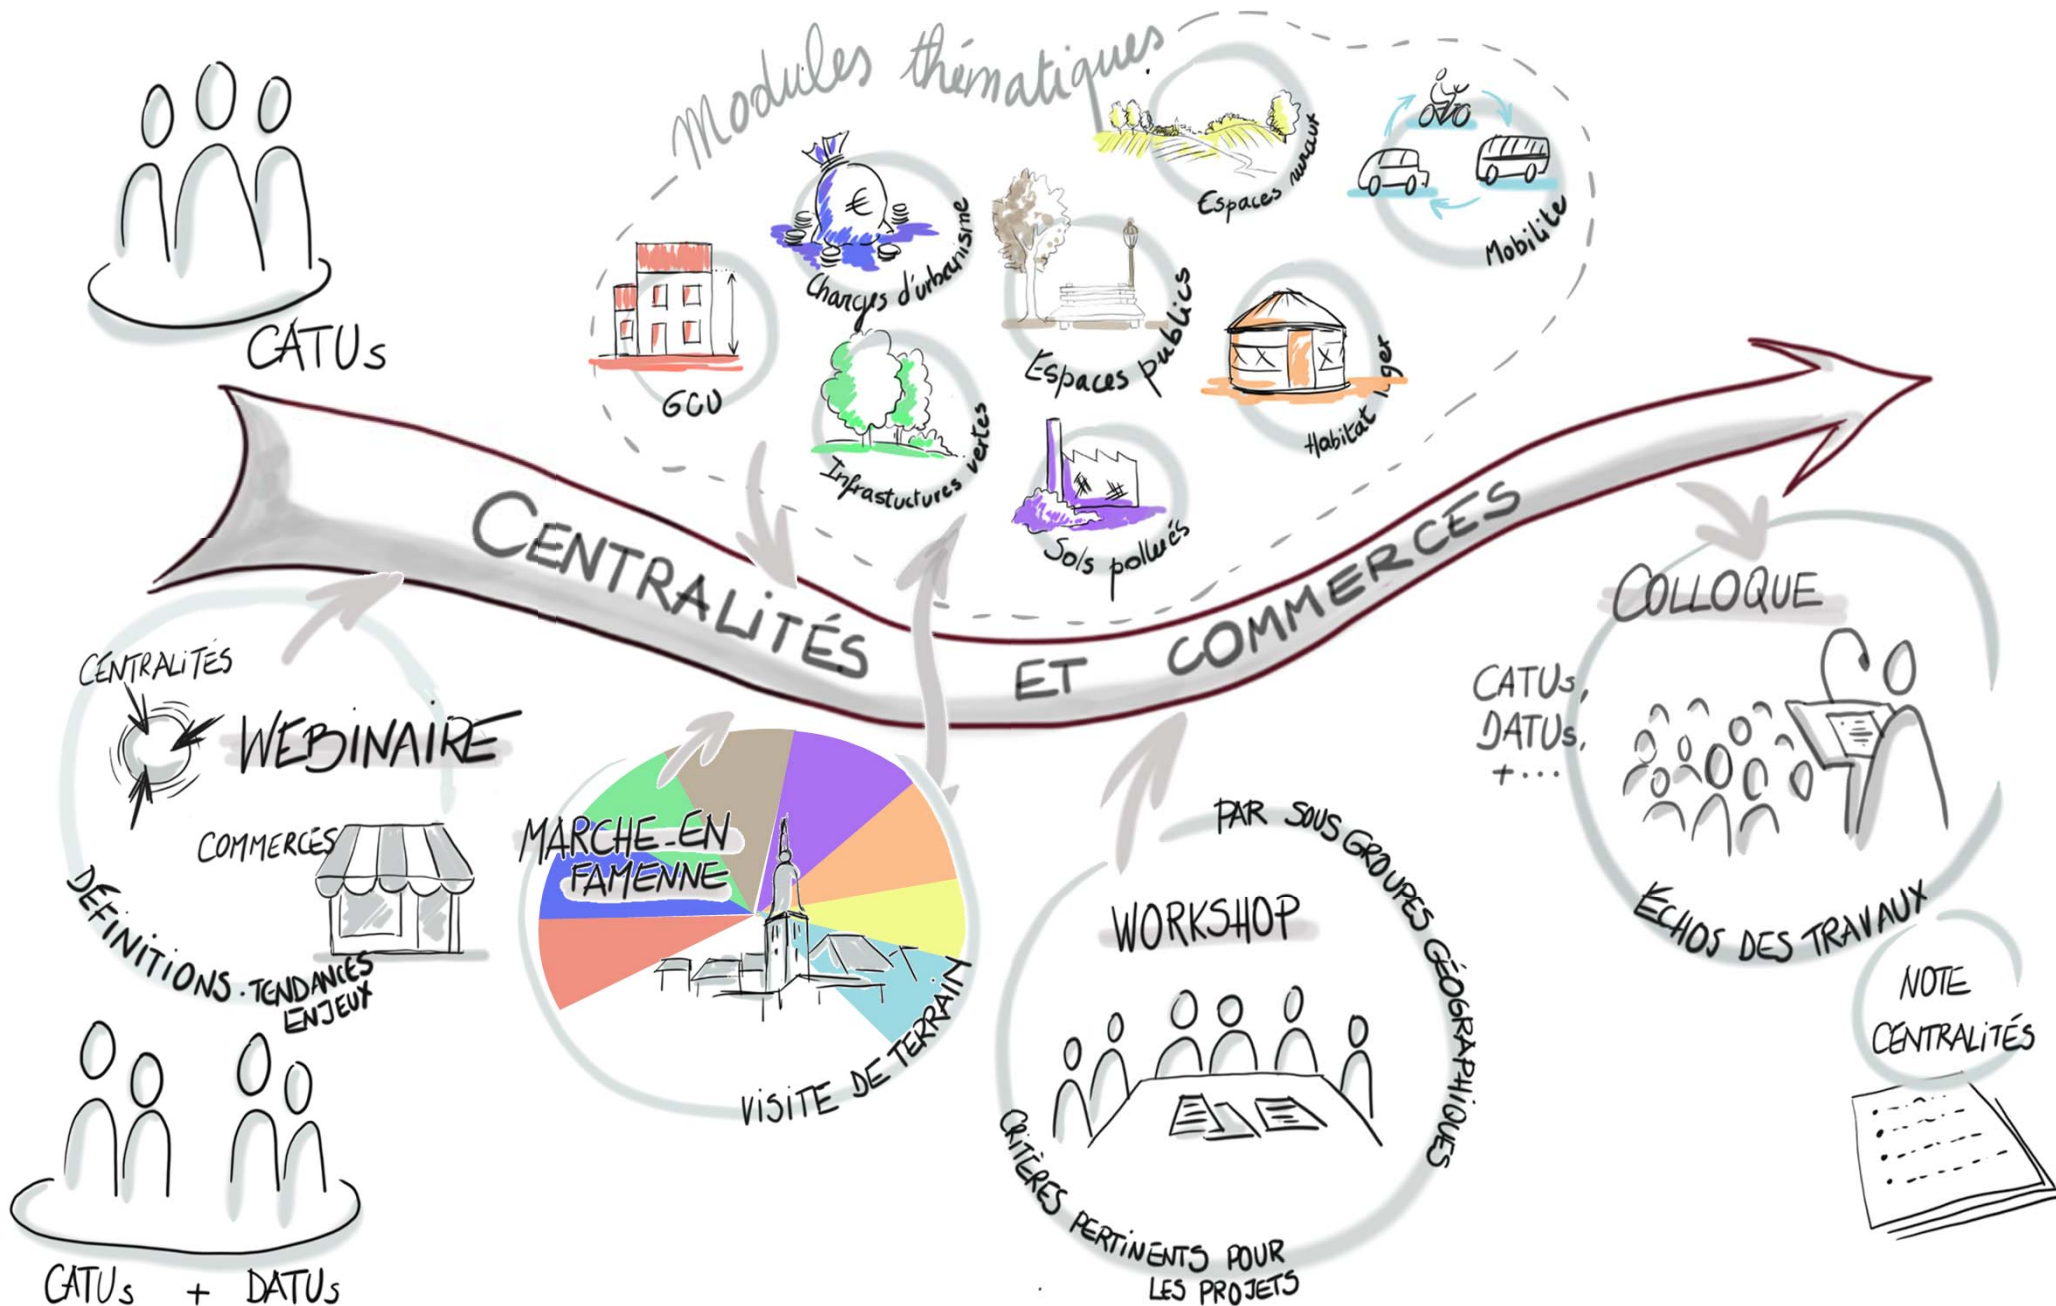 Modules thématiques
CATUs
GCU
Charges d'urbanisme
Infrastuctures vertes
Espaces publics
Espaces ruraux
Mobilite
Habitat léger
Sols pollués
CENTRALITÉS ET COMMERCES
CENTRALITÉS
WEBINAIRE
COMMERCES
DÉFINITIONS. TENDANCES
ENJEUX
CATUs + DATUs
MARCHE-EN
FAMENNE
VISITE DE TERRAIN
PAR SOUS GROUPES GÉOGRAPHIQUES
WORKSHOP
CRITÈRES PERTINENTS POUR
LES PROJETS
COLLOQUE
CATUs,
DATUs,
+...
ÉCHOS DES TRAVAUX
NOTE
CENTRALITÉS